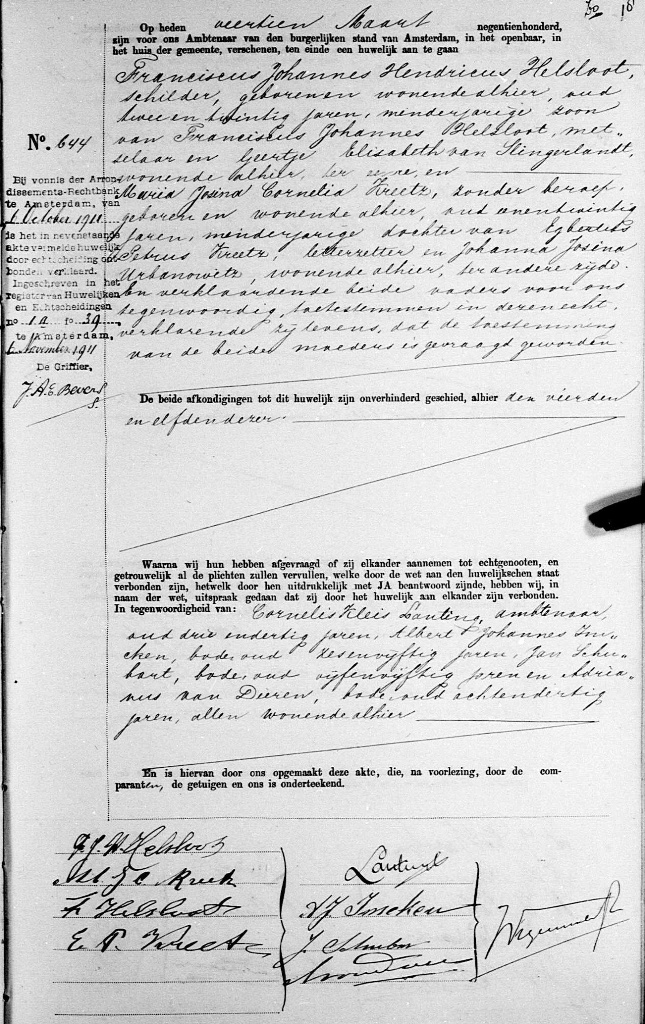 Op heden veertien Maart negentienhonderd,
zijn voor ons Ambtenaar van den burgerlijken stand van Amsterdam, in het openbaar, in
het huis der gemeente, verschenen, ten einde een huwelijk aan te gaan
Franciscus Johannes Hendricus Helsloot,
schilder, geboren en wonende alhier, oud
twee en twintig jaren, minderjarige zoon
van Franciscus Johannes Helsloot, met-
selaar en Geertje Elisabeth van Slingerlandt,
wonende alhier, ter eene, en
Maria Josina Cornelia Kreetz, zonder beroep,
geboren en wonende alhier, oud een en twintig
jaren, minderjarige dochter van Egbertus
Petrus Kreetz, letterzetter en Johanna Josina
Urbanowitz, wonende alhier, ter andere zijde.
En verklaarden de beide vaders voor ons
tegenwoordig, toetestemmen in deren echt
verklarende zij tevens, dat de toestemming
van de beide moeders is gevraagd geworden.
No. 644
Bij vonnis der Arron-
dissements-Rechtbank
te Amsterdam, van
6 October 1911
is het in nevenstaande
akte vermelde huwelijk
door echtscheiding ont-
bonden verklaard.
Ingeschreven in het
register van Huwelijken
en Echtscheidingen
no 1a fo 39
te Amsterdam,
6 November 1911
De Griffier,
J.A.E. Bevers
De beide afkondigingen tot dit huwelijk zijn onverhinderd geschied, alhier den vierden
en elfden dezer.
Waarna wij hun hebben afgevraagd of zij elkander aannemen tot echtgenooten, en
getrouwelijk al de plichten zullen vervullen, welke door de wet aan den huwelijkschen staat
verbonden zijn, hetwelk door hen uitdrukkelijk met JA beantwoord zijnde, hebben wij, in
naam der wet, uitspraak gedaan dat zij door het huwelijk aan elkander zijn verbonden.
In tegenwoordigheid van: Cornelis Kleis Lanting, ambtenaar,
oud drie en dertig jaren, Albert Johannes Im-
cken, bode, oud zes en vijftig jaren, Jan Schu-
bart, bode, oud vijf en vijftig jaren en Adria-
nus van Dieren, bode, oud acht en dertig
jaren, allen wonende alhier
En is hiervan door ons opgemaakt deze akte, die, na voorlezing, door de com-
paranten, de getuigen en ons is onderteekend.
F. J. H. Helsloot
M J C Kreetz
F Helsloot
E. P. Kreetz
Lanting
A J Imcken